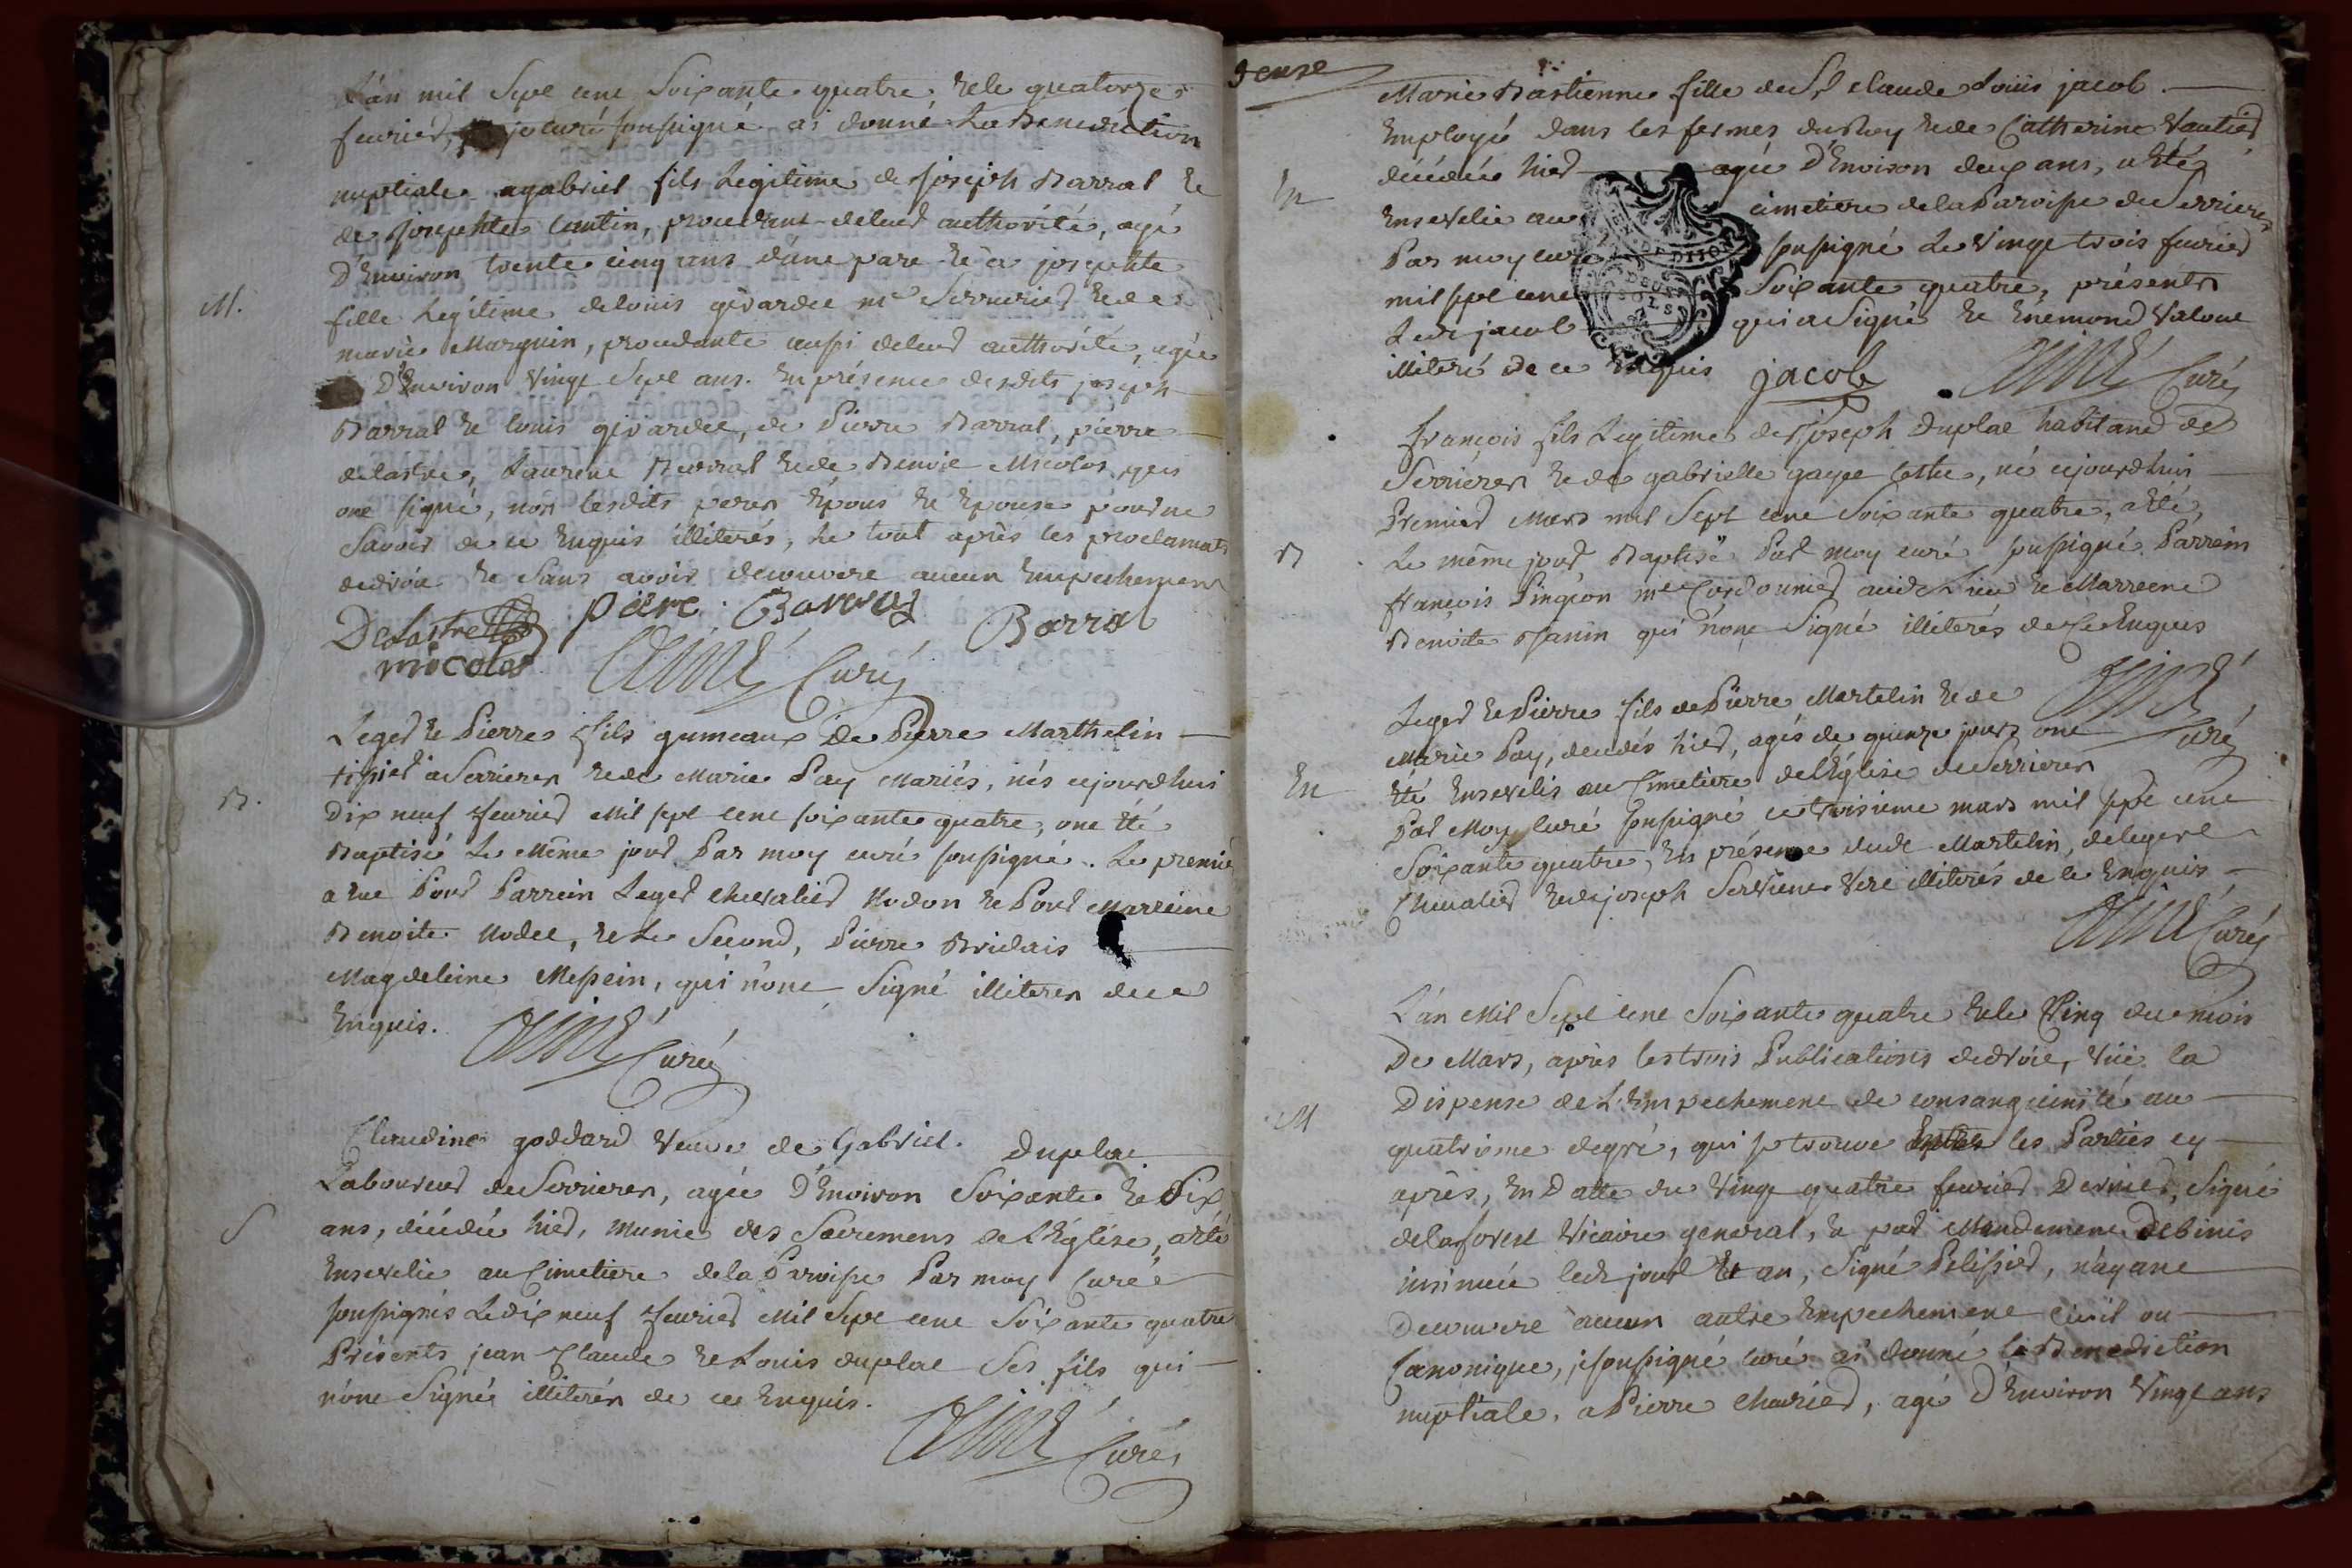 L'an mil Sept cent Soixante quatre & le quatorze
fevrier, je curé soussigné ai donné La Benediction
nuptiale a gabriel fils Legitime de joseph Barral &
de josephte Cantin, procedant de leur authorité, agé
D'Environ trente cinq ans d'une part & a josephte
M.
fille Legitime de louis girardet me Serrurier & de
marie Marguin, procedante aussi de leur authorité, agée
D'Environ Vingt Sept ans. En présence desdits joseph
Barral & louis girardet, de Pierre Barral, pierre
delastre, Laurent Barral & de Benoit Micolas qui
ont signé, non lesdits peres Epous & Epouse pour ne
Savoir de ce Enquis illiterés, Le tout après les proclamats
de droit & Sans avoir decouvert aucun Empechement
Delastre piere Barral Barral
micolas Aimé Curé
Leger & Pierre fils gumeaux de Pierre Marthelin
tissier a Serrieres & de Marie Pay Mariés, nés cejourdhui
B.
Dix neuf fevrier Mil sept cent soixante quatre, ont été
Baptisé Le Même jour Par moy curé soussigné. Le premier
a Eu Pour Parrein Leger chevalier Nodon & Pour Marreine
Benoite Nodet, & Le Second, Pierre Bridais
Magdeleine Messein, qui n'ont Signé illiteres de ce
Enquis. Aimé Curé
Claudine goddard Veuve de Gabriel Duplat
Laboureur de Serrieres, agée D'Environ Soixante & Dix
S
ans, décédée hier, munie des Sacremens de L'Église, a eté
Ensevelie au Cimetiere de la Paroisse Par moy Curé
soussignés Le dix neuf fevrier Mil Sept cent Soixante quatre
Présents jean Claude & Louis duplat Ses fils qui
n'ont Signés illiterés de ce Enquis.
Aimé Curé
Marie Bastienne fille de Sr claude Louis jacob
Employé dans les fermes du Roy & de Catherine Vautier
En
décédée hier agée D'Environ deux ans, a Eté
Ensevelie au cimetiere de la Paroisse de Serrieres
Par moy curé soussigné Le Vingt trois fevrier
mil sept cent Soixante quatre, présents
Ledt jacob qui a Signé & Enemond Valout
illiteré de ce Enquis jacob Aimé Curé
DEUX
SOLS
françois fils Legitime de Joseph Duplat habitant de
Serrieres & de gabrielle gayet Cotte, né cejourdhui
Premier Mars mil Sept cent Soixante quatre, a Eté,
B
Le même jour Baptisé Par moy curé soussigné. Parrein
françois Pingeon me Cordonnier audt Lieu & Marreine
Benoite Janin qui n'ont Signé illiterés de Ce Enquis
Aimé
Curé
Leger & Pierre fils de Pierre Martelin & de
Marie Pay, decedés hier, agés de quinze jours ont
En
Eté Ensevelis au Cimetiere de l'Église de Serrieres
Par Moy Curé soussigné ce troisieme mars mil sept cent
Soixante quatre, En présence dudt Martelin, de leger
Chevalier & de joseph illiterés de ce Enquis
Aimé Curé
L'an Mil Sept cent Soixante quatre & le Cinq du mois
De Mars, après les trois Publications de droit, Vüe la
Dispense de L'Empechement de consanguinité au
M
quatrieme degré, qui se trouve Entre les Parties cy
après, En Datte du Vingt quatre fevrier Dernier, Signé
delaforest Vicaire general, & par Mandement Debinis
insinuée ledt jour & an, Signé Pelissier, n'ayant
Decouvert aucun autre Empechement Civil ou
Canonique, je soussigné curé ai donné la Benediction
nuptiale, a Pierre Charier, agé D'Environ Vingt ans